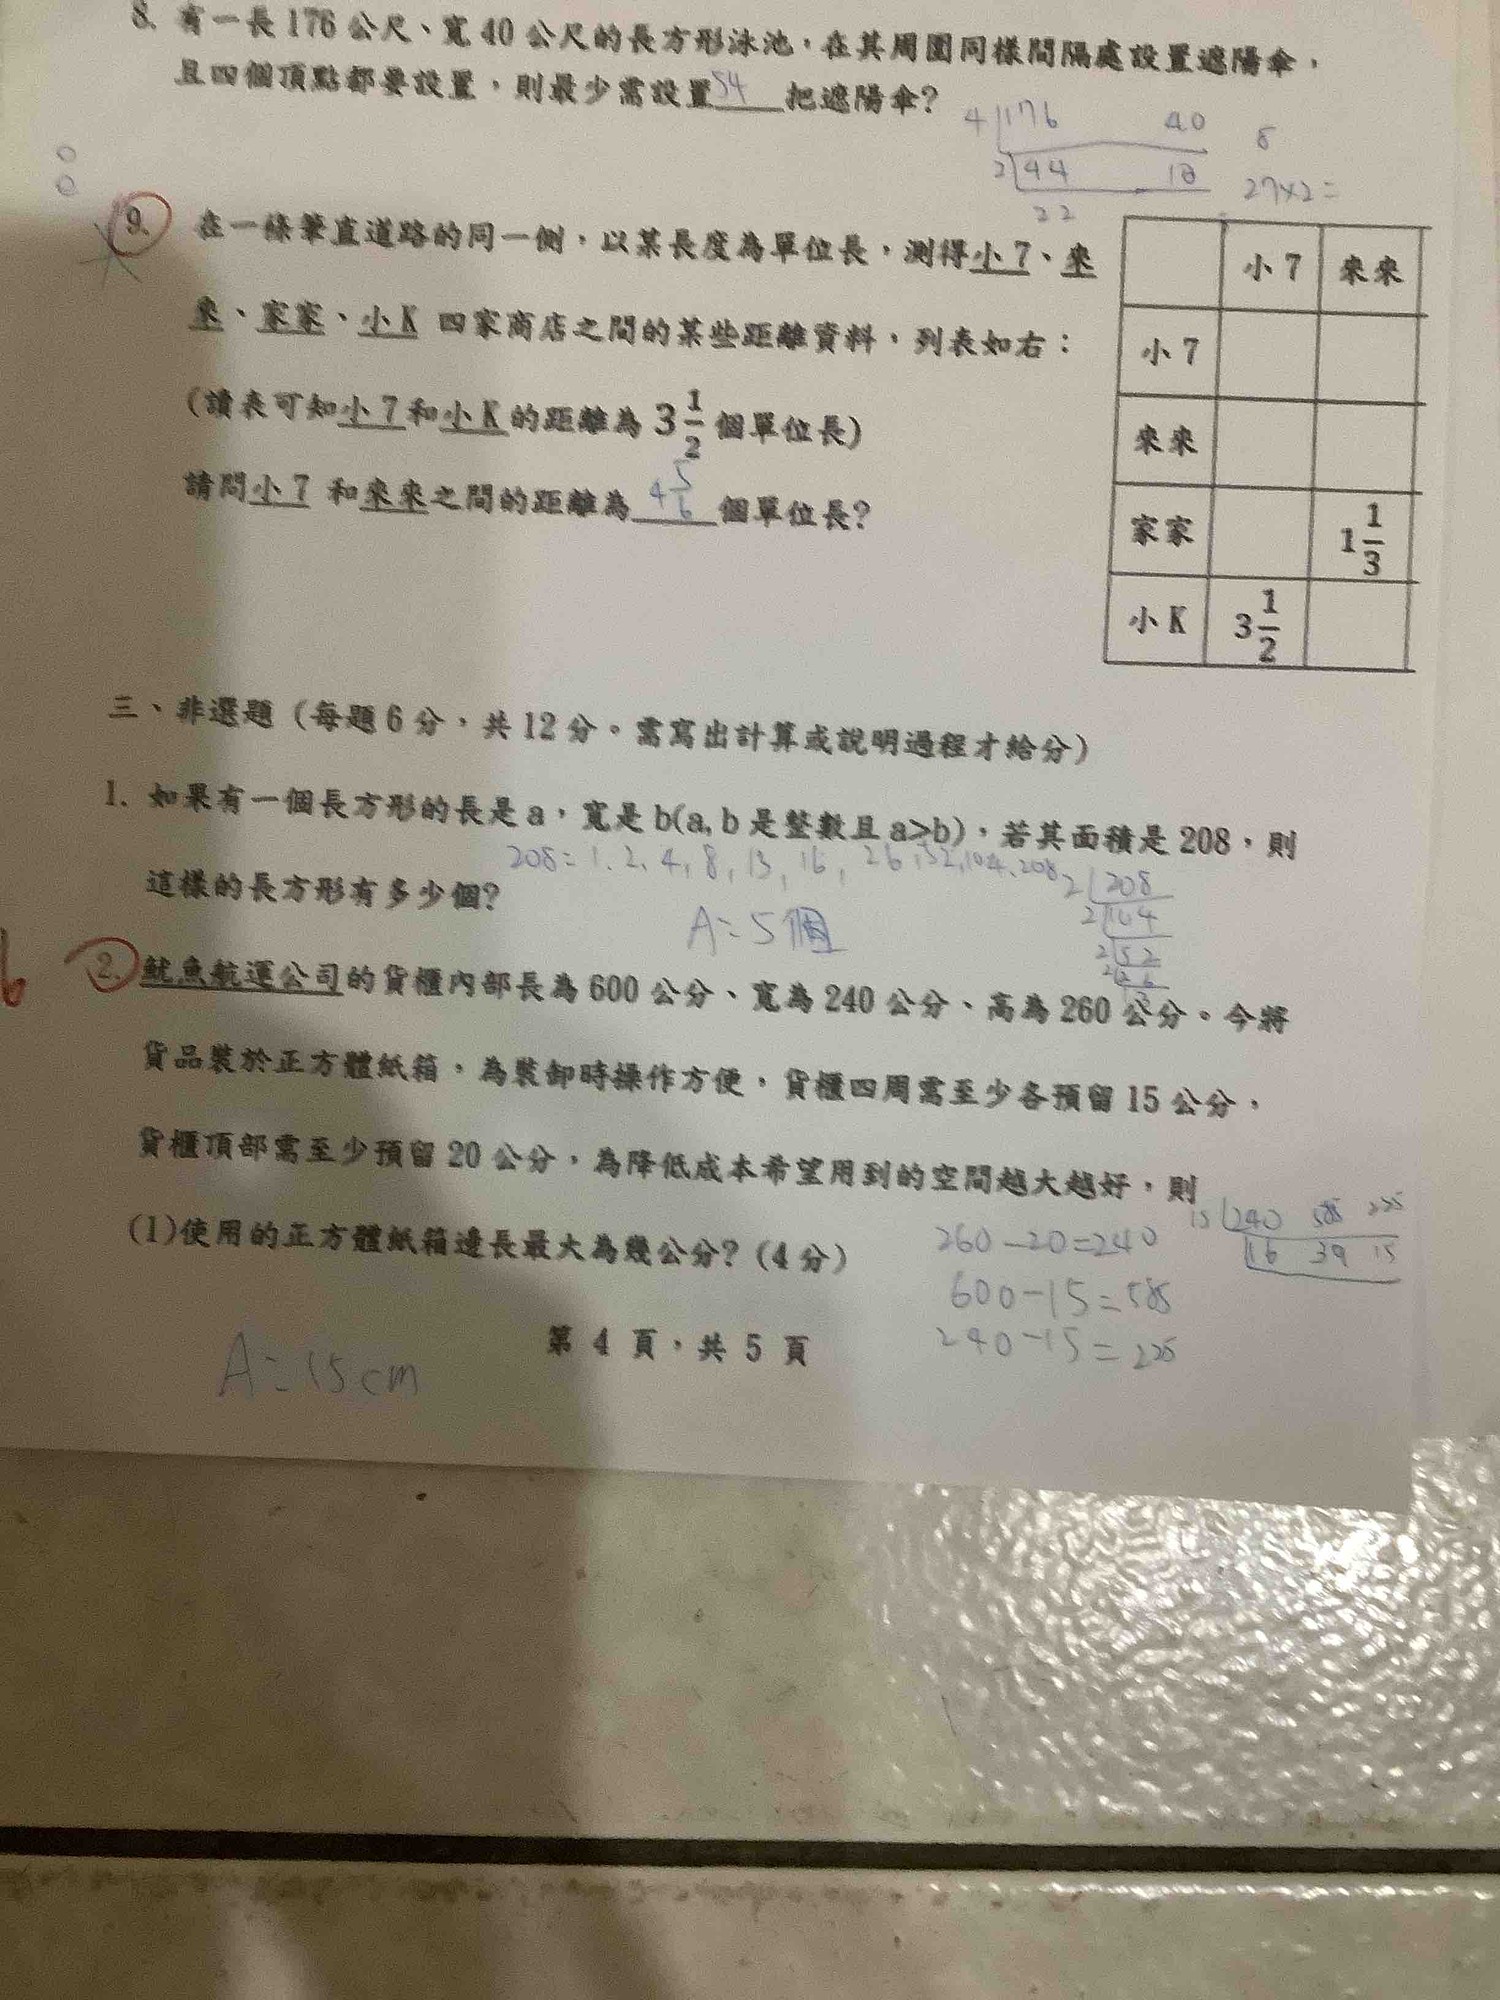 8. 有一長 176 公尺、寬 40 公尺的長方形泳池，在其周圍同樣間隔處設置遮陽傘，
且四個頂點都要設置，則最少需設置54把遮陽傘？
4 176 40 8
2 44 10 27×2=
22
9. 在一條筆直道路的同一側，以某長度為單位長，測得小7、來
來、家家、小K 四家商店之間的某些距離資料，列表如右：
(讀表可知小7和小K的距離為 3 1/2 個單位長)
請問小7 和來來之間的距離為 4 5/6 個單位長？
小7 來來
小7
來來
家家 1 1/3
小K 3 1/2
三、非選題（每題6分，共12分。需寫出計算或說明過程才給分）
1. 如果有一個長方形的長是a，寬是b(a, b是整數且a>b)，若其面積是208，則
208= 1、2、4，8，13，16，26，52，104、208
這樣的長方形有多少個？
A=5個
2 208
2 104
2 52
2 26
13
2. 魷魚航運公司的貨櫃內部長為600公分、寬為240公分、高為260公分。今將
貨品裝於正方體紙箱，為裝卸時操作方便，貨櫃四周需至少各預留15公分，
貨櫃頂部需至少預留20公分，為降低成本希望用到的空間越大越好，則
(1)使用的正方體紙箱邊長最大為幾公分？(4分)
260-20=240
600-15=585
240-15=225
15 240 585 225
16 39 15
A=15cm
第 4 頁，共 5 頁